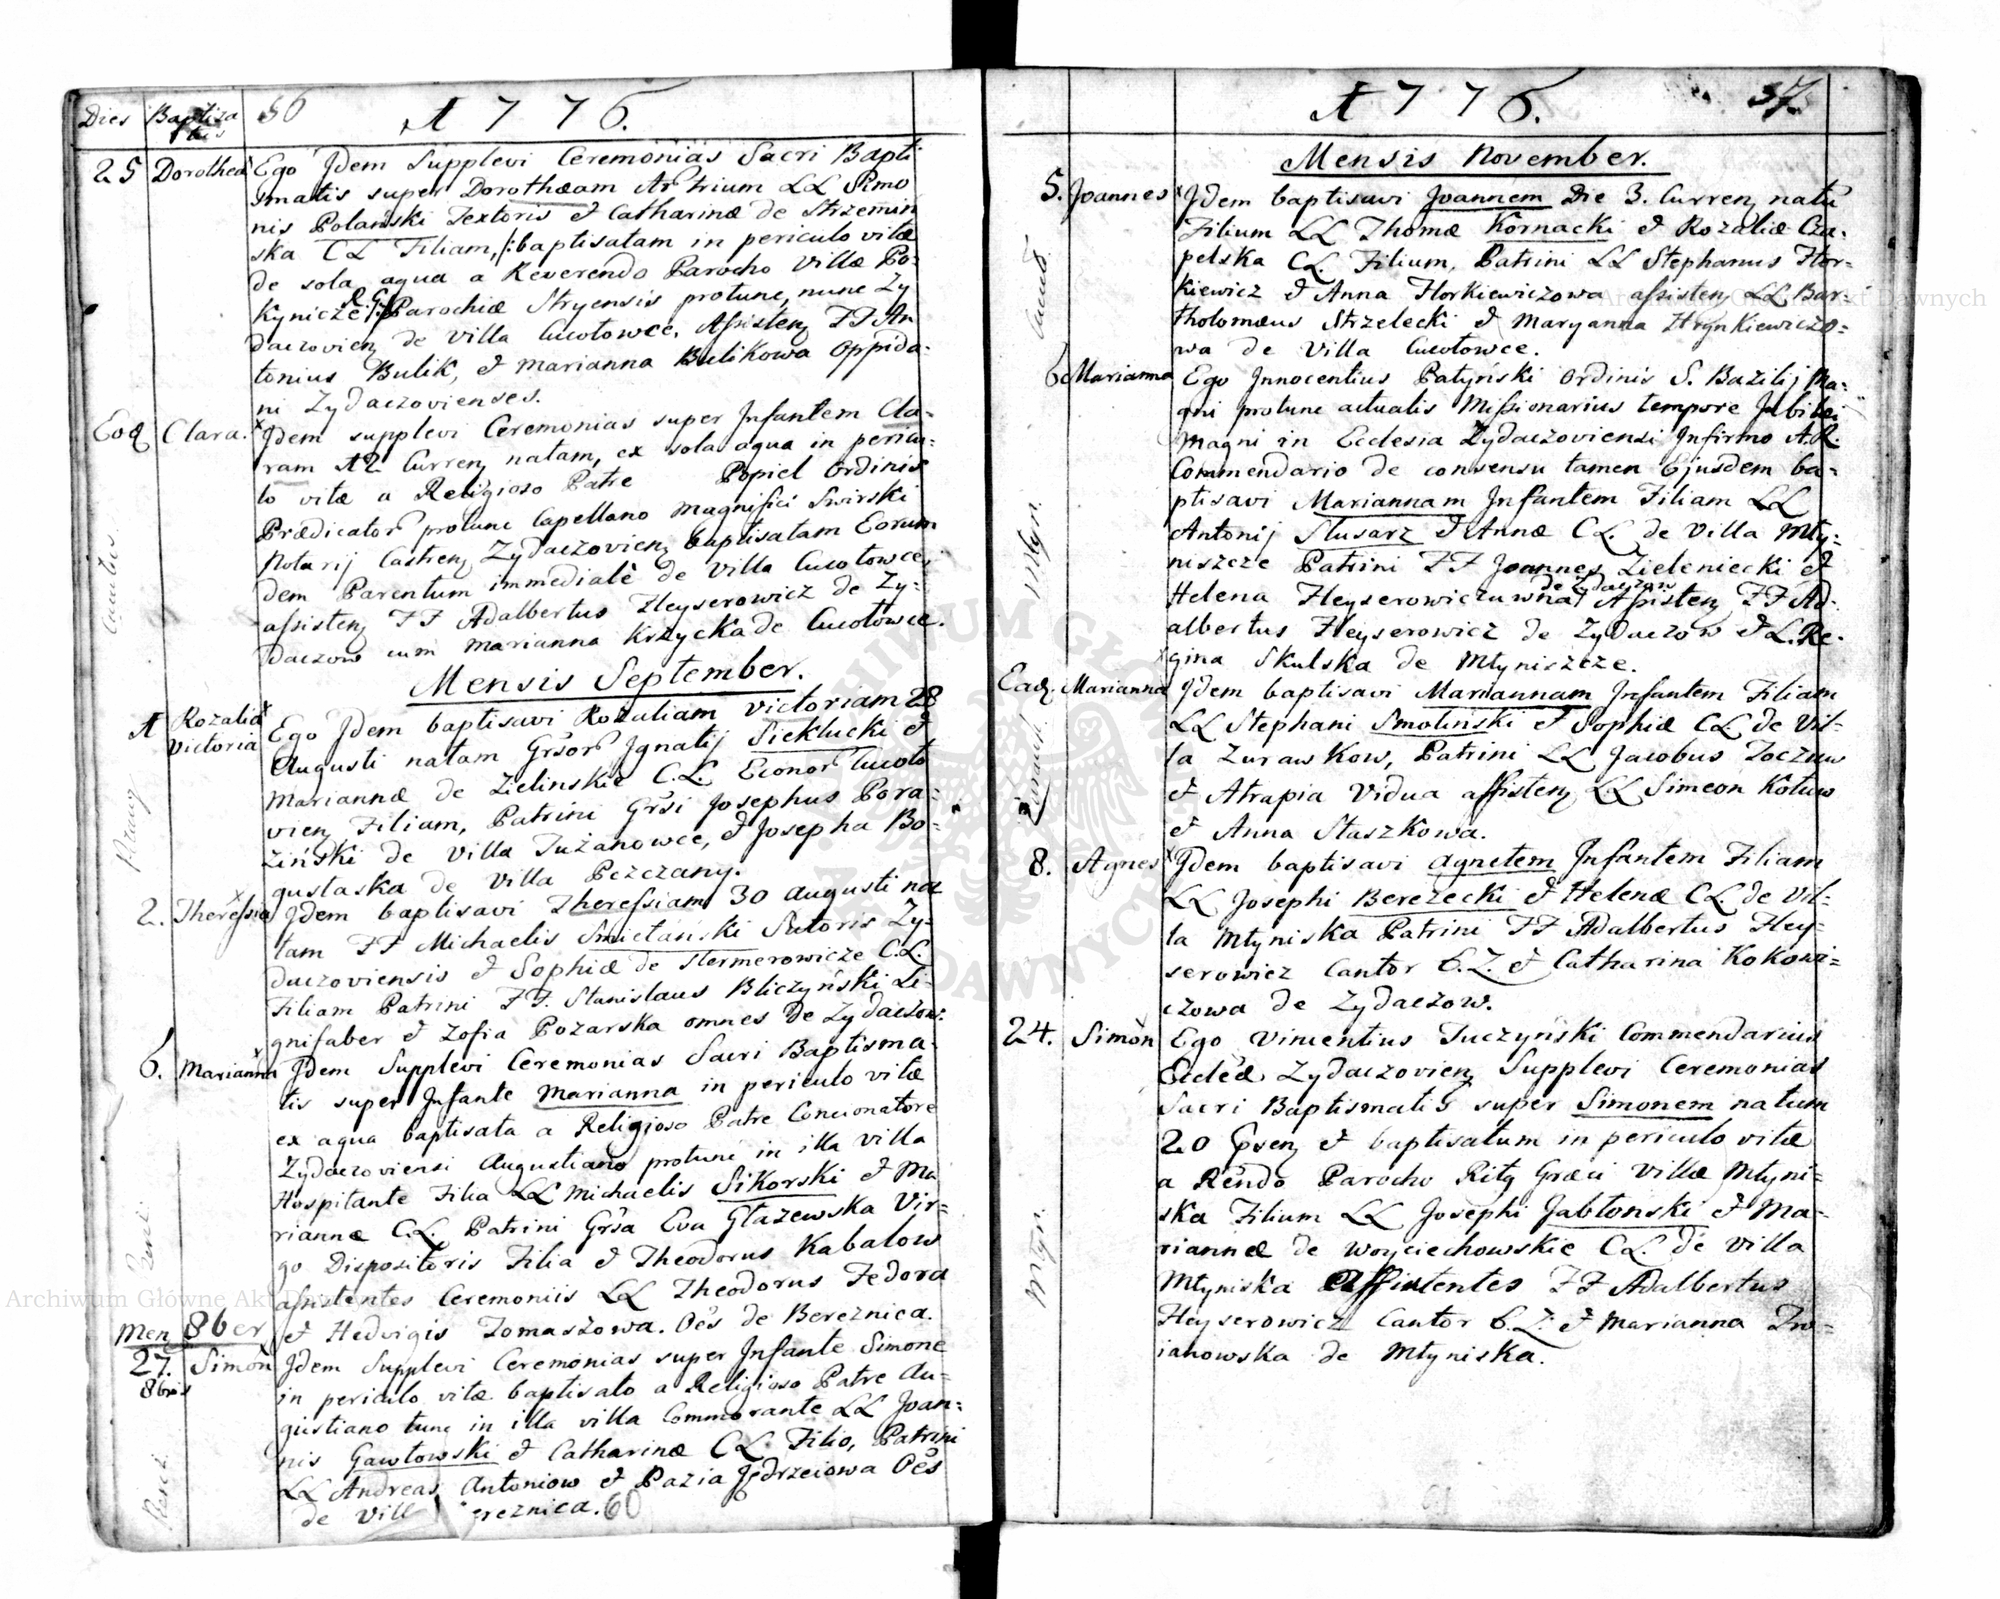 Dies Baptisatus 36 1776.
25 Dorothea Ego Idem Supplevi Ceremonias Sacri Bapti
smatis super Dorothæam Artrium LL Simo
nis Polanski Textoris & Catharinæ de Strzemin
ska CL Filiam, /:baptisatam in periculo vitæ
de sola aqua a Reverendo Parocho Villæ Po=
kynicze R.G:/ Parochiæ Stryensis protunc, nunc Zy
daczovien de Villa Cucołowce. Assisten FF An
tonius Bulik, & Marianna Bulikowa Oppida=
ni Zydaczovienses.
Eod Clara. Idem supplevi Ceremonias super Infantem Cla=
ram 12 Curren natam, ex sola aqua in pericu=
lo vitæ a Religioso Patre Popiel Ordinis
Prædicator protunc Capellano Magnifici Swirski
Notarij Castren Zydaczovien baptisatam Eorum
dem Parentum immediatè de Villa Cucołowce,
assisten FF Adalbertus Heyserowicz de Zy=
daczow cum Marianna Krzycka de Cucołowce.
Mensis September.
1 Rozalia Victoria Ego Idem baptisavi Rozaliam Victoriam 28
Augusti natam Grsor Ignatij Sieklucki &
Mariannæ de Zielinskie C.L. Econor Cucoło
vien Filiam, Patrini Grsi Josephus Pora=
ziński de Villa Tużanowce, & Josepha Bo=
gustaska de Villa Peżczany.
2. Theressia Idem baptisavi Theressiam 30 Augusti na
tam FF Michaelis Smietański Sutoris Zy=
daczoviensis & Sophiæ de Hermerowicze C.L.
Filiam Patrini FF. Stanislaus Bliczyński Li=
gnifaber & Zofia Pozarska omnes de Zydaczow.
6. Marianna Idem Supplevi Ceremonias Sacri Baptisma=
tis super Infante Marianna in periculo vitæ
ex aqua baptisata a Religioso Patre Concionatore
Zydaczoviensi Augustiano protunc in illa Villa
Hospitante Filia LL Michaelis Sikorski & Ma
riannæ C.L. Patrini Grsa Eva Głazewska Vir=
go Dispositoris Filia & Theodorus Kabalow
assistentes Ceremoniis LL Theodorus Fedora
& Hedvigis Tomaszowa. Oēs de Bereznica.
Men 8ber
27. 8bris Simon Idem Supplevi Ceremonias super Infante Simone
in periculo vitæ baptisato a Religioso Patre Au=
gustiano tunc in illa villa Commorante LL Joan=
nis Gawłowski & Catharinæ CL. Filio, Patrini
LL Andreas Antoniow & Pazia Jędrzeiowa Oēs
de Vill ereznica. 60
1776. 37.
Mensis November.
5. Joannes Idem baptisavi Joannem Die 3. Curren natū
Filium LL Thomæ Kornacki & Rozaliæ Cza=
pelska CL. Filium, Patrini LL Stephanus Hor=
kiewicz & Anna Horkiewiczowa assisten LL Bar=
tholomæus Strzelecki & Maryanna Hrynkiewiczo=
wa de Villa Cucołowce.
6 Marianna Ego Innocentius Patyński Ordinis S. Bazilij Ma=
gni protunc actualis Missionarius tempore Jubilæi
Magni in Ecclesia Zydaczoviensi Infirmo A.R.
Commendario de consensu tamen Ejusdem ba=
ptisavi Mariannam Infantem Filiam LL
Antonij Slusarz & Annæ CL. de Villa Mły=
niszcze Patrini FF Joannes Zieleniecki &
Helena Heyserowiczuwna de Zydaczow Assisten FF Ad=
albertus Heyserowicz de Zydaczow & L. Re=
gina Skulska de Młyniszcze.
Ead. Marianna Idem baptisavi Mariannam Infantem Filiam
LL Stephani Smoliński & Sophiæ CL de Vil=
la Zurawkow, Patrini LL Jacobus Toczuw
& Atrapia Vidua assisten LL Simeon Kotuw
& Anna Staszkowa.
8. Agnes Idem baptisavi Agnetem Infantem Filiam
LL Josephi Berezecki & Helenæ CL. de Vil=
la Młyniska Patrini FF Adalbertus Hey=
serowicz Cantor E.Z. & Catharina Kokowi=
czowa de Zydaczow.
24. Simon Ego Vincentius Tuczyński Commendarius
Eccleæ Zydaczovien Supplevi Ceremonias
Sacri Baptismatis super Simonem natum
20 Psen & baptisatum in periculo vitæ
a Rēndo Parocho Ritg Græci Villæ Młyni=
ska Filium LL Josephi Jabłonski & Ma=
riannæ de Woyciechowskie CL. de Villa
Młyniska Assistentes FF Adalbertus
Heyserowicz Cantor E.Z. & Marianna Tro=
ianowska de Młyniska.